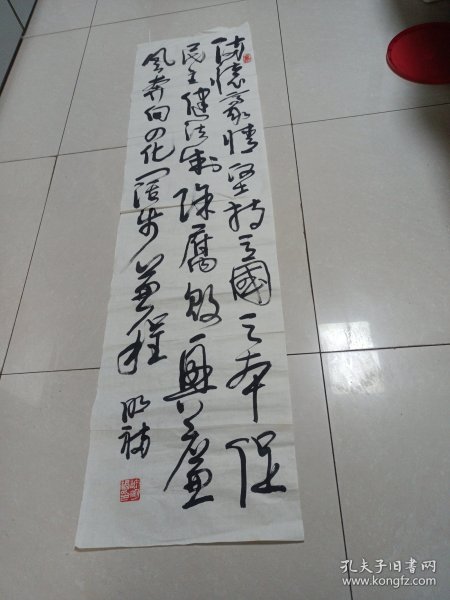 满怀豪情坚持立国之本促
民主健法制除腐败兴廉
风奔向四化阔步兼程
明补
孔夫子旧书网
www.kongfz.com